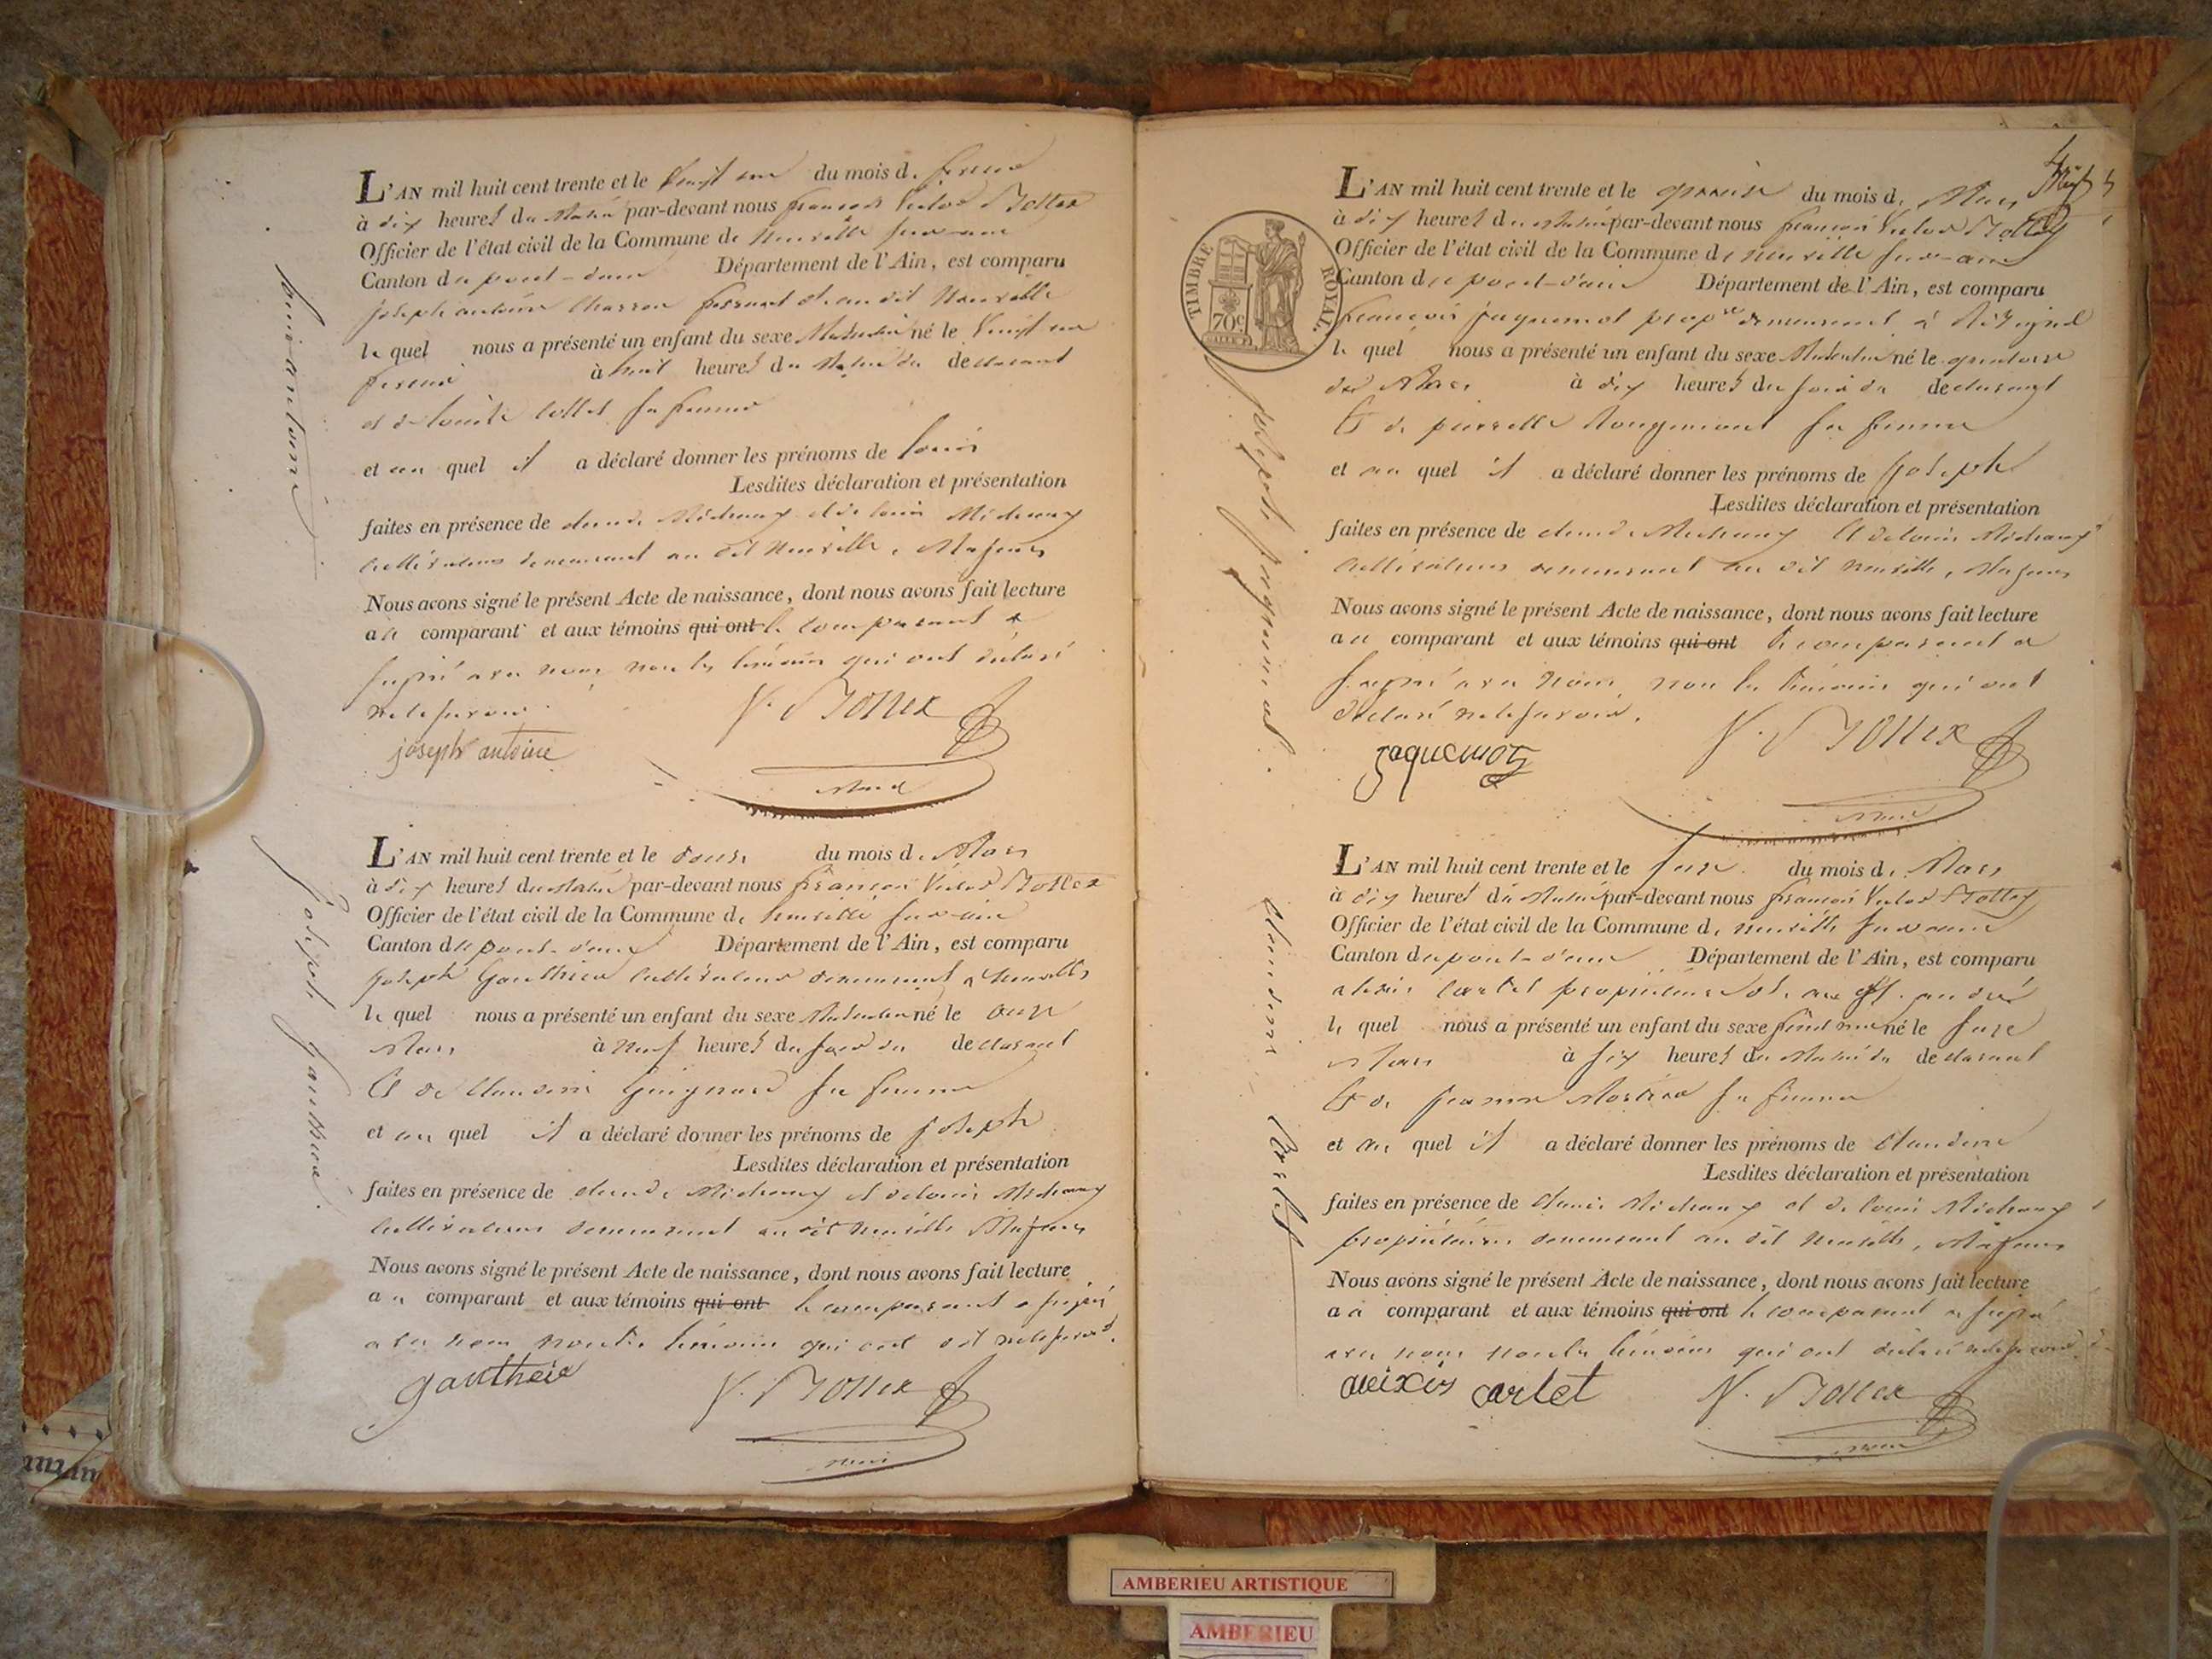 L'AN mil huit cent trente et le vingt un du mois de fevrier
à dix heures du matin par-devant nous françois Victor Bottex
Officier de l'état civil de la Commune de Neuville sur-ain
Canton du pont-d'ain Département de l'Ain, est comparu
joseph antoine demeurant au dit Neuville
le quel nous a présenté un enfant du sexe Masculin né le vingt un
fevrier à huit heures du Matin du declarant
et de sa femme
et au quel il a déclaré donner les prénoms de louis
Lesdites déclaration et présentation
faites en présence de claude Michaux et de louis Michaux
cultivateurs demeurant au dit Neuville, Majeurs
Nous avons signé le présent Acte de naissance, dont nous avons fait lecture
au comparant et aux témoins qui ont le comparant a
signé avec nous non les témoins qui ont declaré
ne le savoir.
joseph antoine
V. Bottex
louis antoine
L'AN mil huit cent trente et le douze du mois de Mars
à dix heures du matin par-devant nous françois Victor Bottex
Officier de l'état civil de la Commune de Neuville sur-ain
Canton du pont-d'ain Département de l'Ain, est comparu
joseph Gauthier cultivateur demeurant à Neuville
le quel nous a présenté un enfant du sexe Masculin né le onze
Mars à neuf heures du soir du declarant
Et de Claudine Guignard sa femme
et au quel il a déclaré donner les prénoms de joseph
Lesdites déclaration et présentation
faites en présence de claude Michaux et de louis Michaux
cultivateurs demeurant au dit Neuville Majeurs
Nous avons signé le présent Acte de naissance, dont nous avons fait lecture
au comparant et aux témoins qui ont le comparant a signé
avec nous non les témoins qui ont dit ne le savoir.
gautheir
V. Bottex
joseph gauthier
L'AN mil huit cent trente et le quinze du mois de Mars
à dix heures du matin par-devant nous françois Victor Bottex
Officier de l'état civil de la Commune de Neuville sur-ain
Canton du pont-d'ain Département de l'Ain, est comparu
françois jaquemot propre demeurant à
le quel nous a présenté un enfant du sexe Masculin né le quatorze
de Mars à dix heures du soir du declarant
Et de pierrette Rougemont sa femme
et au quel il a déclaré donner les prénoms de joseph
Lesdites déclaration et présentation
faites en présence de claude Michaux Et de louis Michaux
cultivateurs demeurant au dit neuville, Majeurs
Nous avons signé le présent Acte de naissance, dont nous avons fait lecture
au comparant et aux témoins qui ont le comparant a
signé avec nous non les témoins qui ont
declaré ne le savoir.
jaquemot
V. Bottex
joseph jaquemot.
TIMBRE ROYAL.
70c
L'AN mil huit cent trente et le seize du mois de Mars
à dix heures du Matin par-devant nous françois Victor Bottex
Officier de l'état civil de la Commune de neuville sur-ain
Canton du pont-d'ain Département de l'Ain, est comparu
alexis cartet propriétaire
le quel nous a présenté un enfant du sexe feminin né le seize
Mars à six heures du Matin du declarant
Et de sa femme
et au quel il a déclaré donner les prénoms de Claudine
Lesdites déclaration et présentation
faites en présence de Michaux et de louis Michaux
propriétaires demeurant au dit neuville, Majeurs
Nous avons signé le présent Acte de naissance, dont nous avons fait lecture
au comparant et aux témoins qui ont le comparant a signé
avec nous non les témoins qui ont declaré ne le savoir
aleixis cartet
V. Bottex
claudine Cartet
AMBERIEU ARTISTIQUE
AMBERIEU